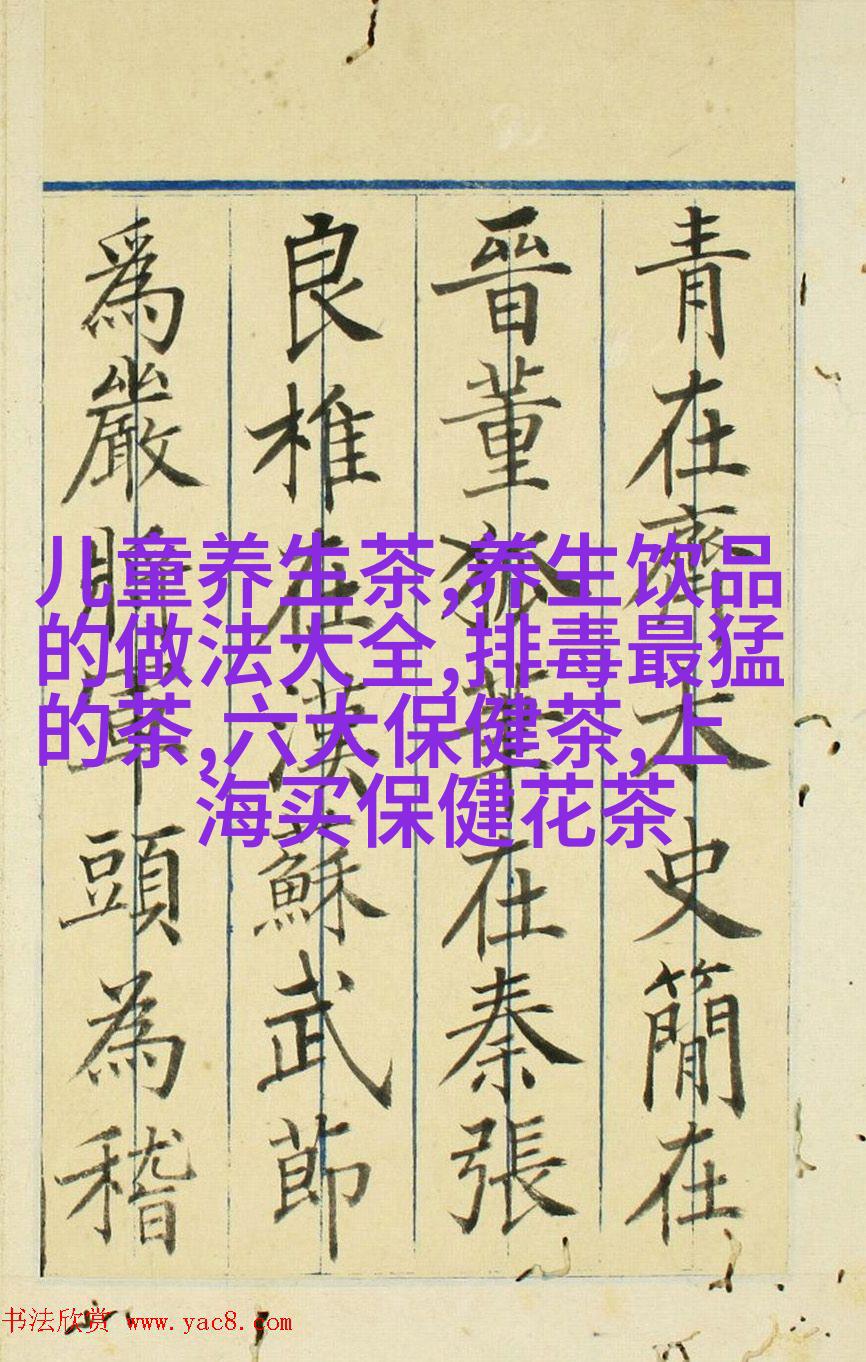 青在齊太史簡在
晉董狐筆在秦張
良椎在漢蘇武節
爲嚴將軍頭為稽
儿童养生茶,养生饮品
的做法大全,排毒最猛
的茶,六大保健茶,上
海买保健花茶
书法欣赏 www.yac8.com